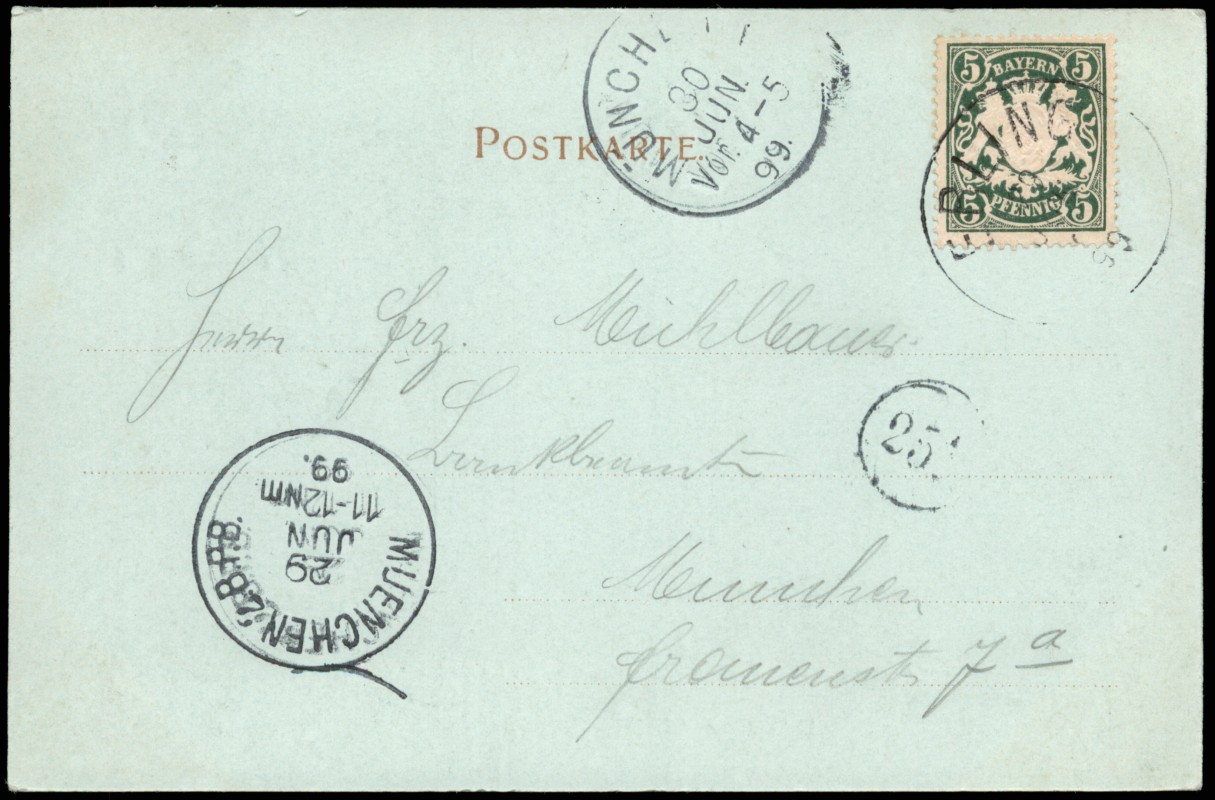 POSTKARTE.
MÜNCHEN
30
JUN.
Vor. 4-5
99.
5 BAYERN 5
5 PFENNIG 5
EBLING
Herrn Frz. Mühlbauer.
Bankbeamte
25
München
Frauenstr 7 a
MUENCHEN 2 B.P.B.
29
JUN
11-12NM
99.